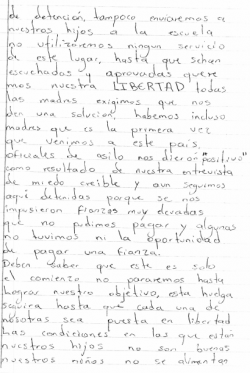 de detención, tampoco enviaremos a
nuestros hijos a la escuela
no utilizaremos ningun servicio
de este lugar, hasta que sehan
escuchadas y aprovadas quere
mos nuestra LIBERTAD todas
las madres exigimos que nos
den una solución, habemos incluso
madres que es la primera vez
que venimos a este pais,
oficiales de asilo nos dieron "positivo"
como resultado de nuestra entrevista
de miedo creible y aun seguimos
aqui detenidas porque se nos
impusieron fianzas muy elevadas
que no pudimos pagar y algunas
no tuvimos ni la oportunidad
de pagar una fianza.
Deben saber que este es solo
el comienzo no pararemos hasta
lograr nuestro objetivo, esta huelga
seguira hasta que cada una de
nosotras sea puesta en libertad
Las condiciones en las que estan
nuestros hijos no son buenas
nuestros niños no se alimentan